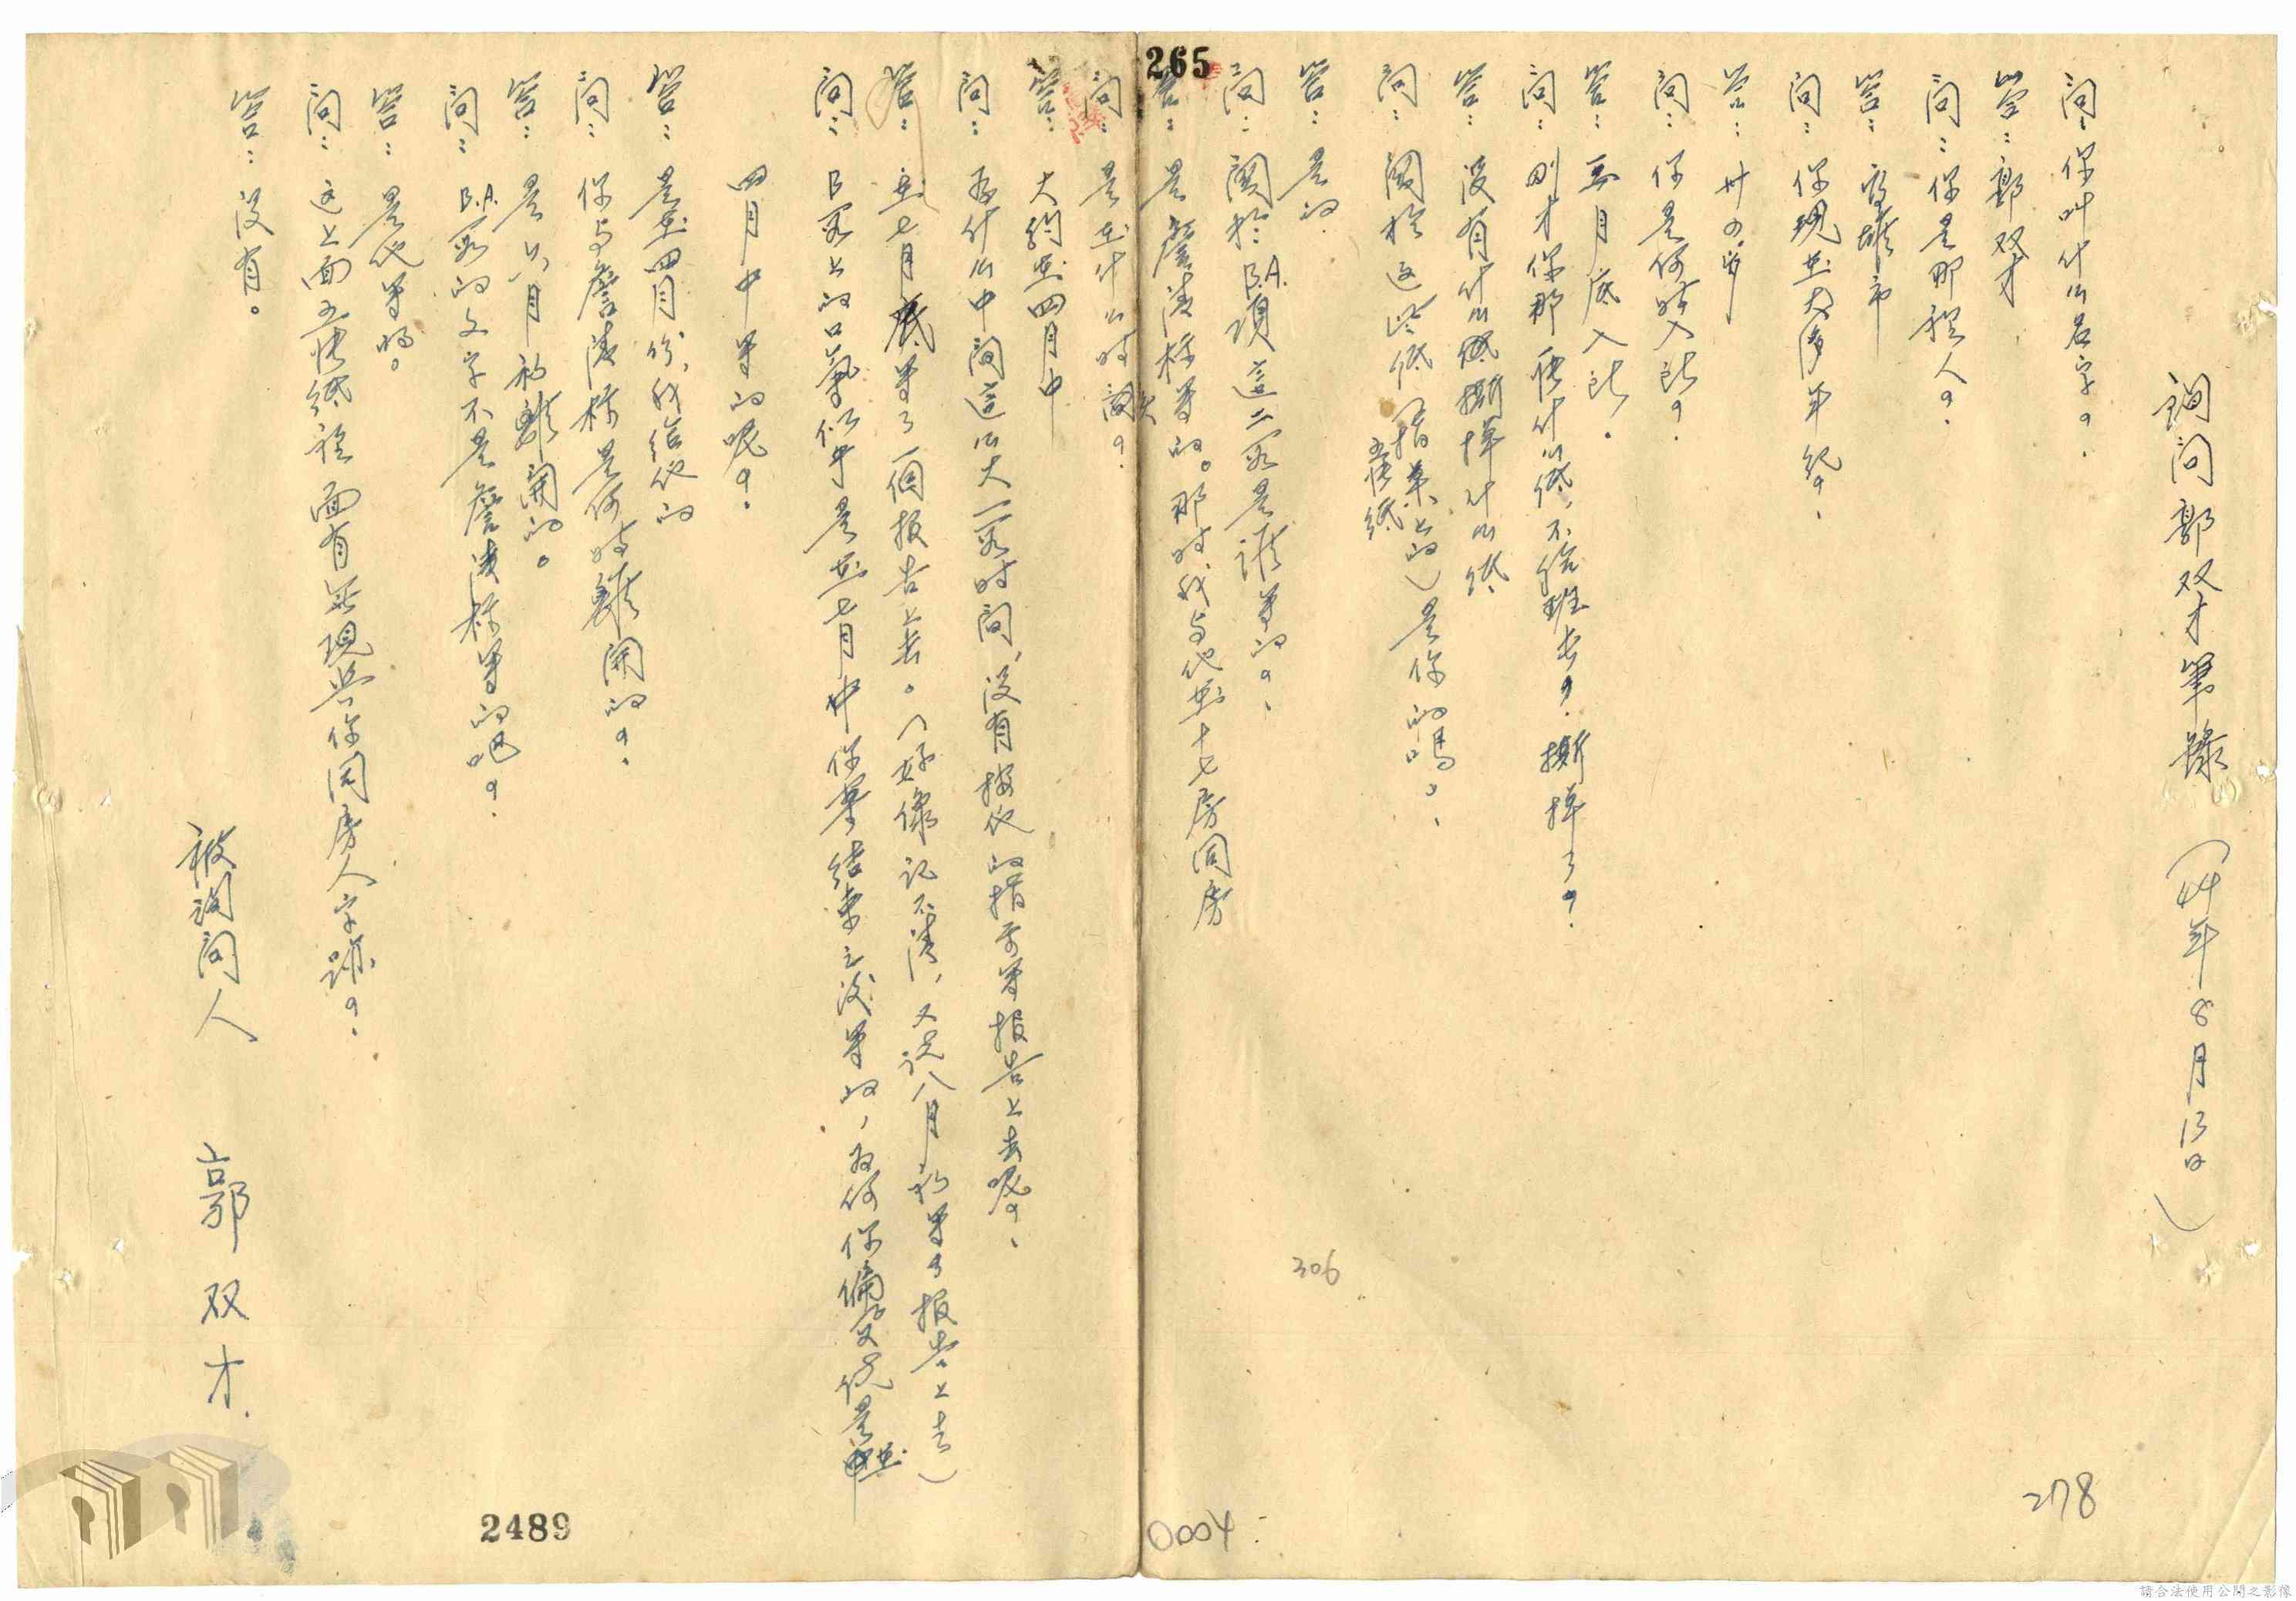 詢問郭双才筆錄（44年8月13日）
問：你叫什么名字？
答：郭双才
問：你是那裡人？
答：高雄市
問：你現在大多年紀？
答：卅四歲
問：你是何時入監？
答：五月底入監．
問：剛才你那張什么紙，不給班長？撕掉了？
答：沒有什么紙撕掉什么紙
問：關於這些紙（指桌上的五張紙）是你的嗎？
答：是的．
問：關於B.A.項這二头是誰寫的？
答：是詹溱标寫的。那時我与他在十七房同房
問：是在什么時間？
答：大約在四月中
問：為什么中間這么大一段時間，沒有按他的指示寫報告上去呢？
答：在七月底寫了一個报告上去。（好像記不清，又説八月初寫了报告上去）
問：B段上的口氣似乎是在七月中你案結束之後寫的，為何你偏要又説是在
四月中寫的呢？
答：是在四月份，我給他的
問：你与詹溱标是何時離開的？
答：是六月初離開的。
問：B.A.段的文字不是詹溱标寫的吧？
答：是他寫的。
問：這上面五張紙裡面有無現与你同房人字跡？
答：沒有。
被詢問人 郭双才
265
306
278
0004
2489
請合法使用公開之影像